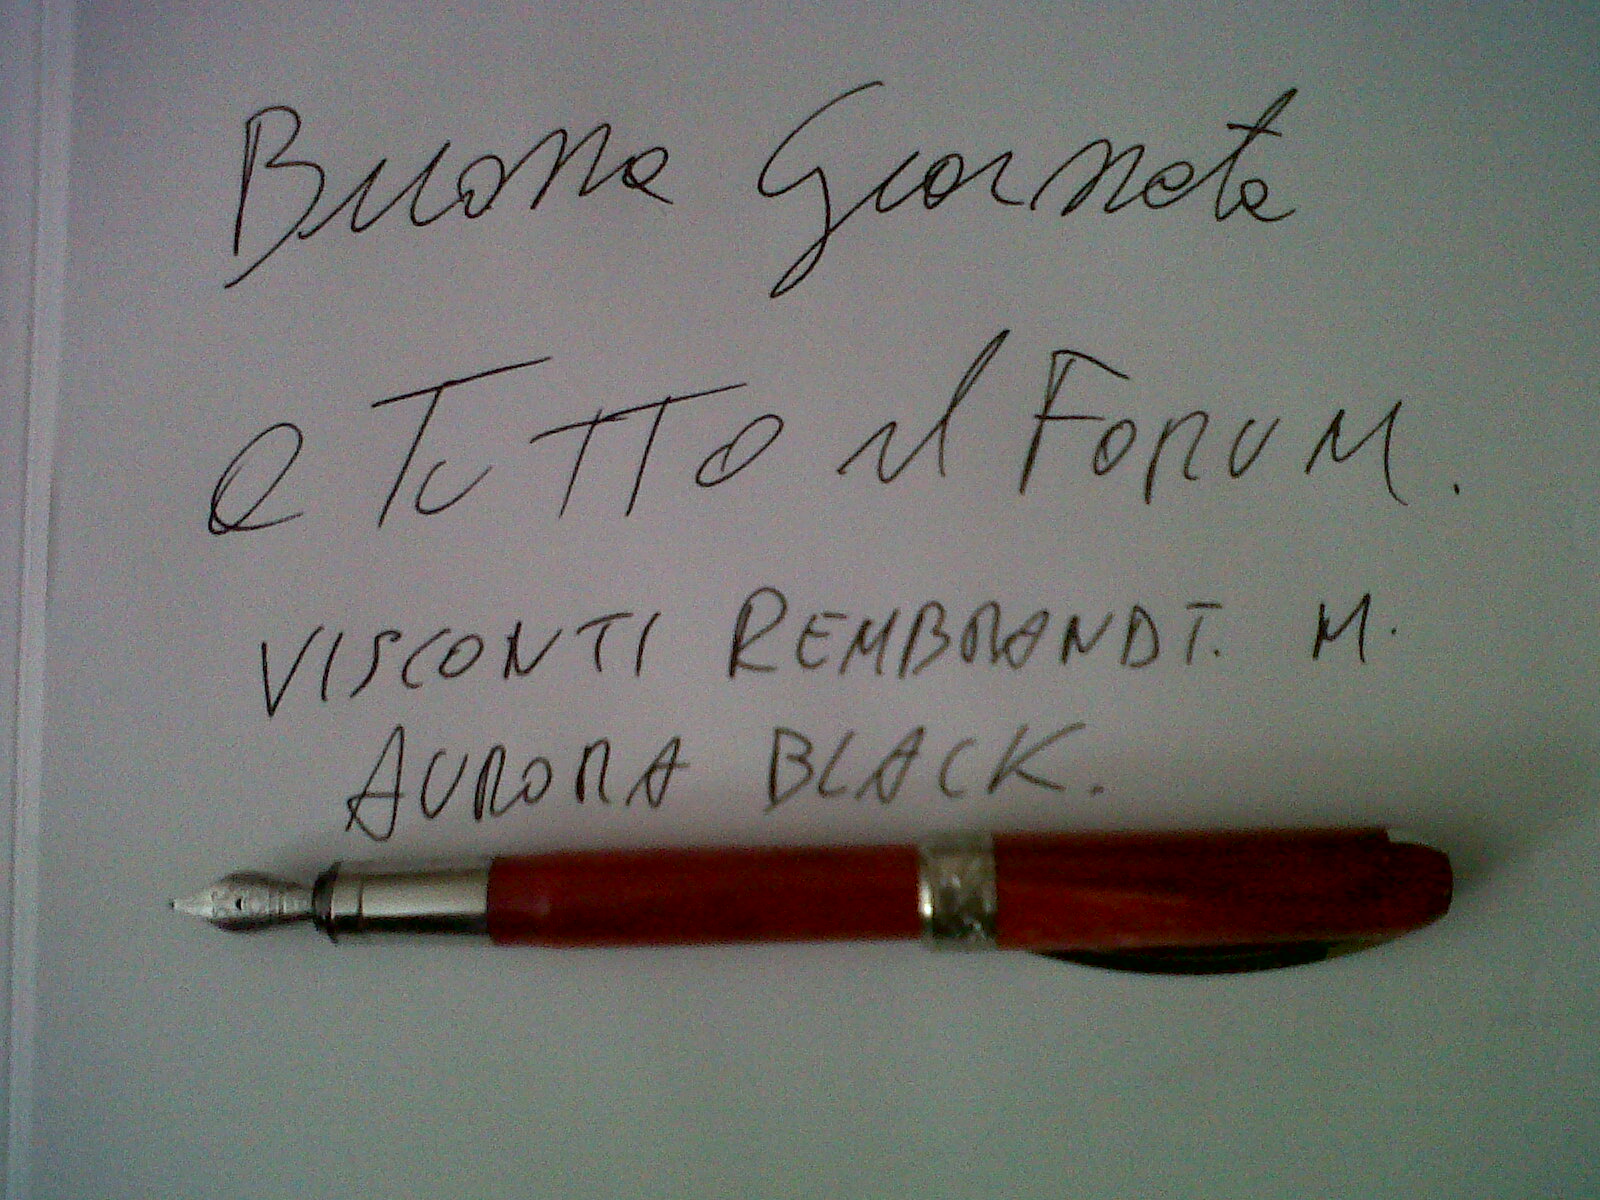 Buona Giornata
a TuTTO il FORUM.
VISCONTI REMBRANDT. M.
AURORA BLACK.